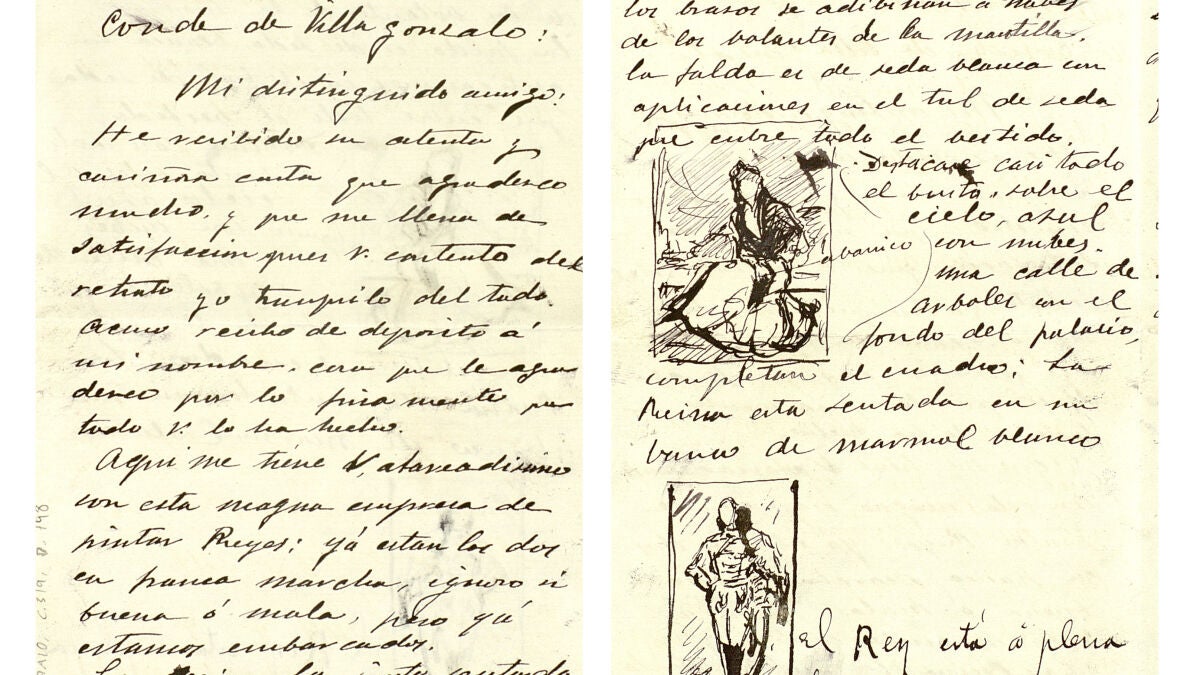 Conde de Villagonzalo:
Mi distinguido amigo:
He recibido su atenta y
cariñosa carta que agradesco
mucho, y que me llena de
satisfaccion pues V. contento del
retrato yo tranquilo del todo.
Acuso recibo de deposito á
mi nombre, cosa que le agra
desco por lo finamente que
todo V. lo ha hecho.
Aqui me tiene V. atareadisimo
con esta magna empresa de
pintar Reyes; yá estan los dos
en franca marcha, ignoro si
buena ó mala, pero yá
estamos embarcados.
La
sentada
los brasos se adibinan a
de los volantes de la mantilla.
la falda es de seda blanca con
aplicaciones en el tul de seda
que cubre todo el vestido.
Destacase casi todo
el busto, sobre el
cielo, asul
con nubes.
abanico
una calle de
arboles con el
fondo del palacio,
completan el cuadro; La
Reina esta sentada en un
banco de marmol blanco
el Rey está á plena
DAIO, C319, D. 198